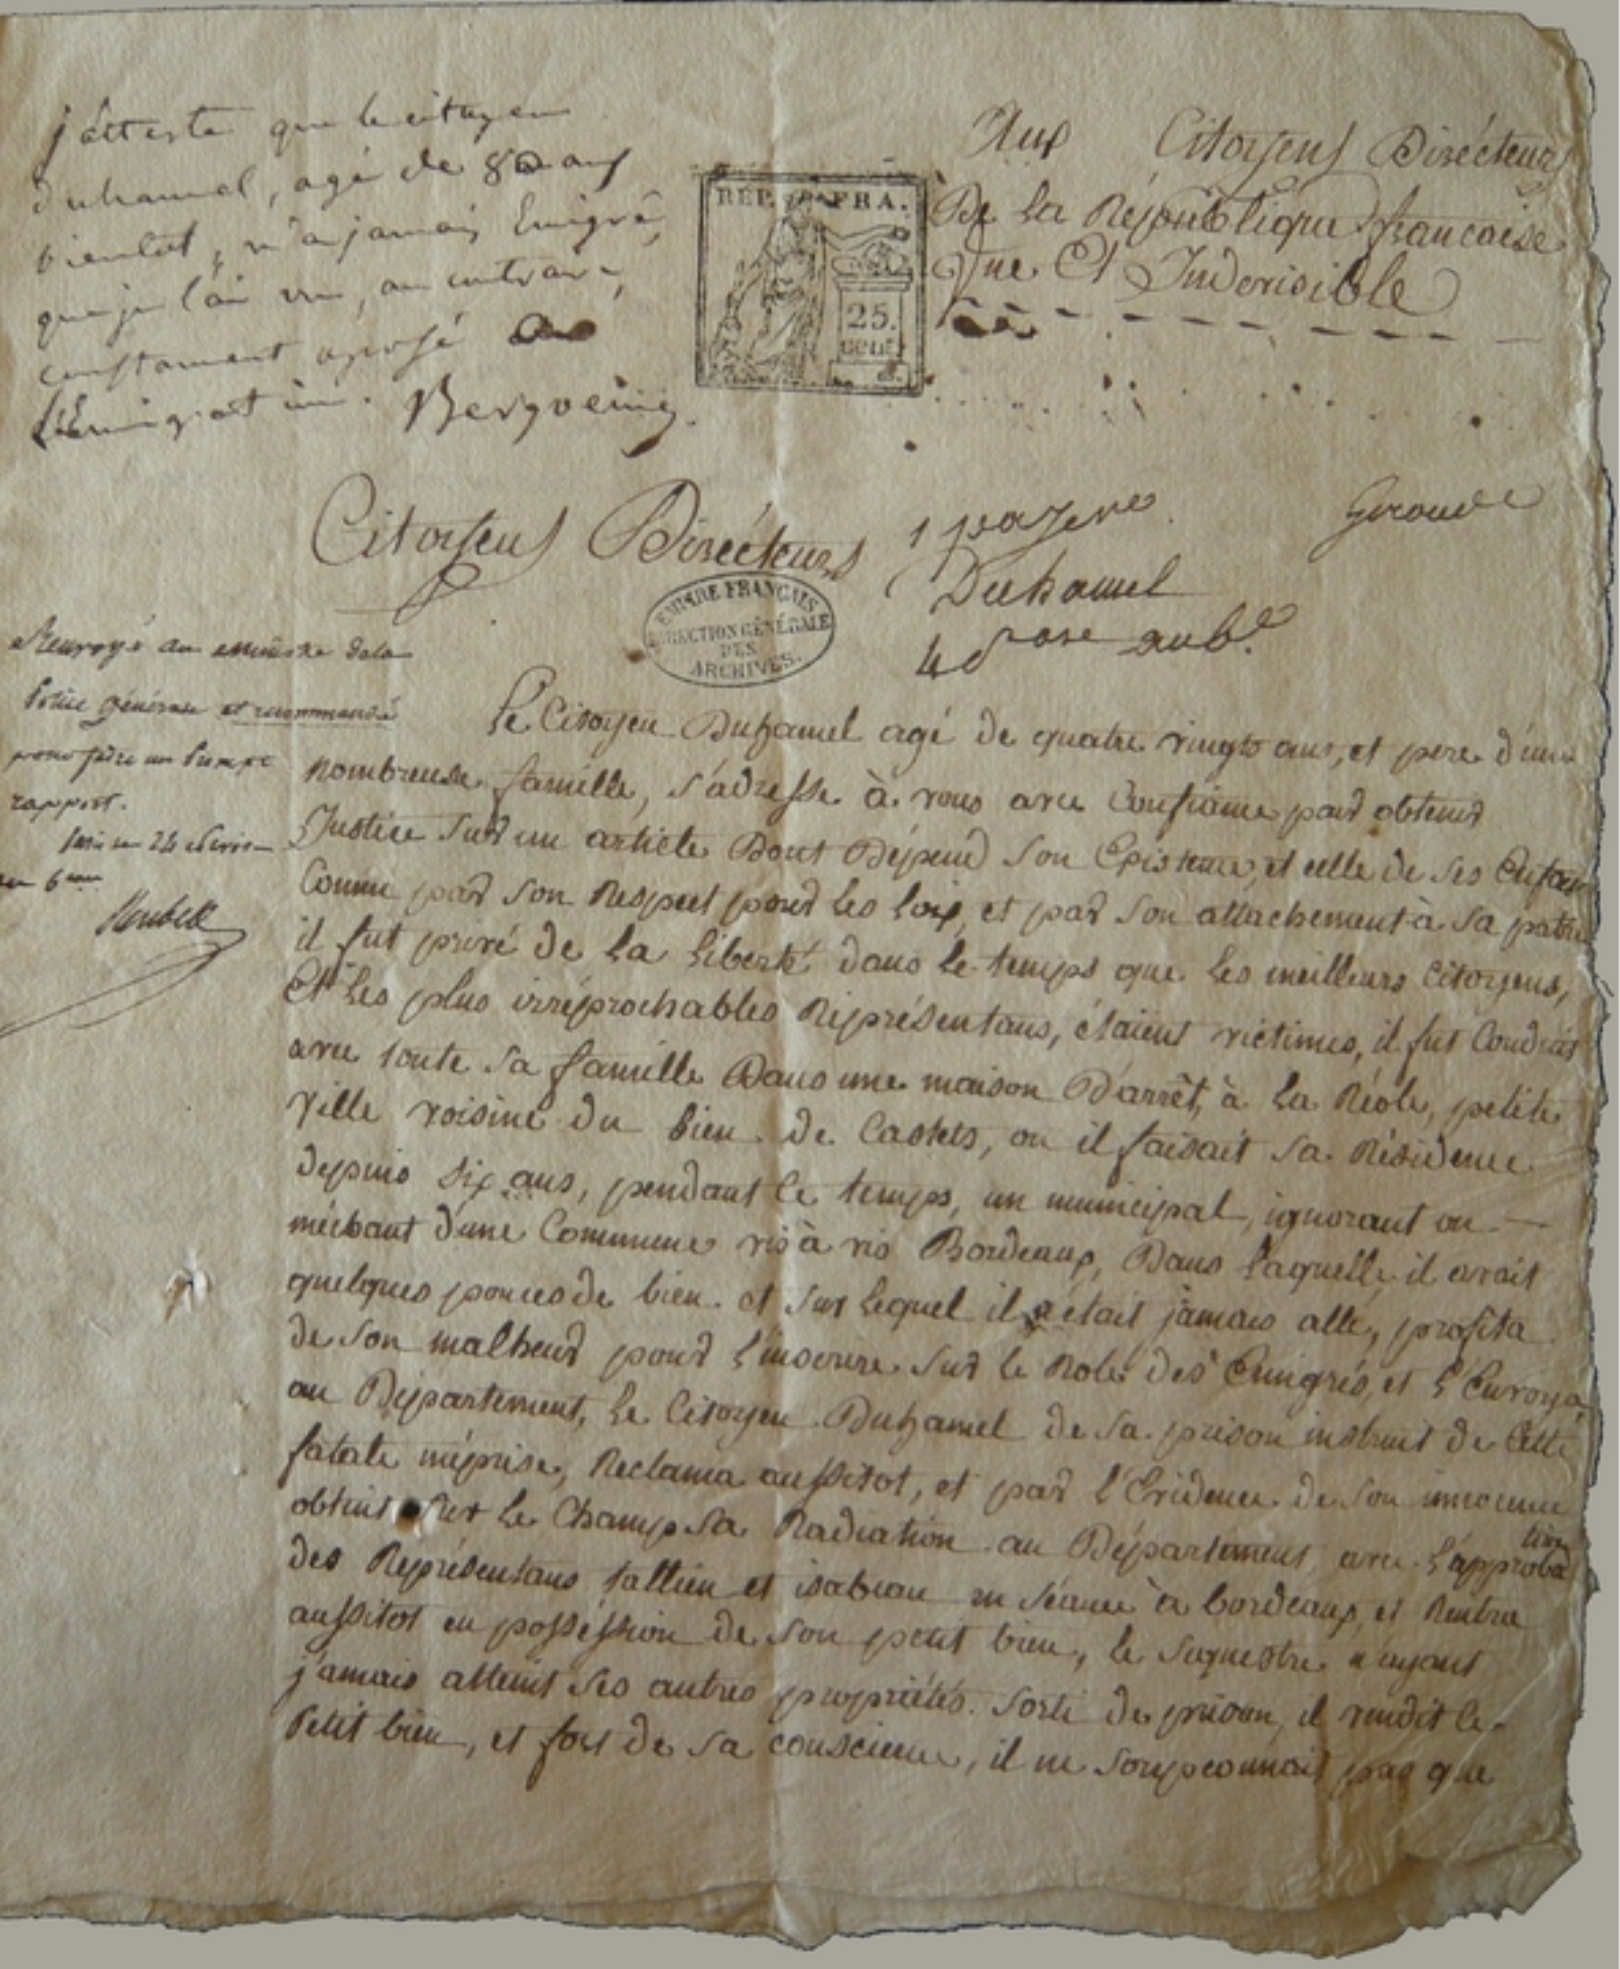 j'atteste que le citoyen
duhamel, agé de 80 ans
bientot, n'a jamais Emigré,
que je l'ai vu, au contraire,
constament oposé a
l'Emigration. Bergoeing.
REP. FRA.
25.
cent.
Aux Citoyens Dirécteurs
De La Républiqque francaise
Une Et Indivisible
Citoyens Dirécteurs
Gironde
Duhamel
EMPIRE FRANÇAIS
DIRECTION GÉNÉRALE
DES
ARCHIVES.
Renvoyé au Ministre dela
Police générale et recommandé
pour faire un prompt
rapport.
26
an 6eme
Rewbell
Le Citoyen Duhamel agé de quatre vingts ans, et pere d'une
nombreuse famille, s'adresse à vous avec Confiance pour obtenir
Justice Sur un article Dont Dépend son Existence, et celle de ses Enfans
Connu par son Respect pour Les loix, et par son attachement à sa patrie
il fut privé de La Liberté dans le temps que Les meilleurs Citoyens,
Et Les plus irréprochables Réprésentans, étaient victimes, il fut Conduit
avec toute sa famille Dans une maison D'arrêt, à La Réole, petite
ville voisine du bien de Castets, ou il faisait sa Résidence
depuis six ans, pendant le temps, un municipal, ignorant ou
méchant d'une Commune vis à vis Bordeaux, Dans Laquelle, il avait
quelques pouces de bien et sur Lequel il n'était jamais allé, profita
de son malheur pour L'inscrire sur le Role des Emigrés, et L'Envoya
au Département, Le Citoyen Duhamel de sa prison instruit de Cette
fatale méprise, Reclama aussitot, et par l'Evidence de son innocence
obtint sur Le Champ sa Radiation au Département avec L'approba
tion
des Réprésentans tallien et isabeau en séance à bordeaux, et Rentra
aussitot en possession de son petit bien, le sequestre n'ayant
jamais atteint ses autres propriétés. sorti de prison, il vendit le
Petit bien, et fort de sa conscience, il ne soupconnait pas que